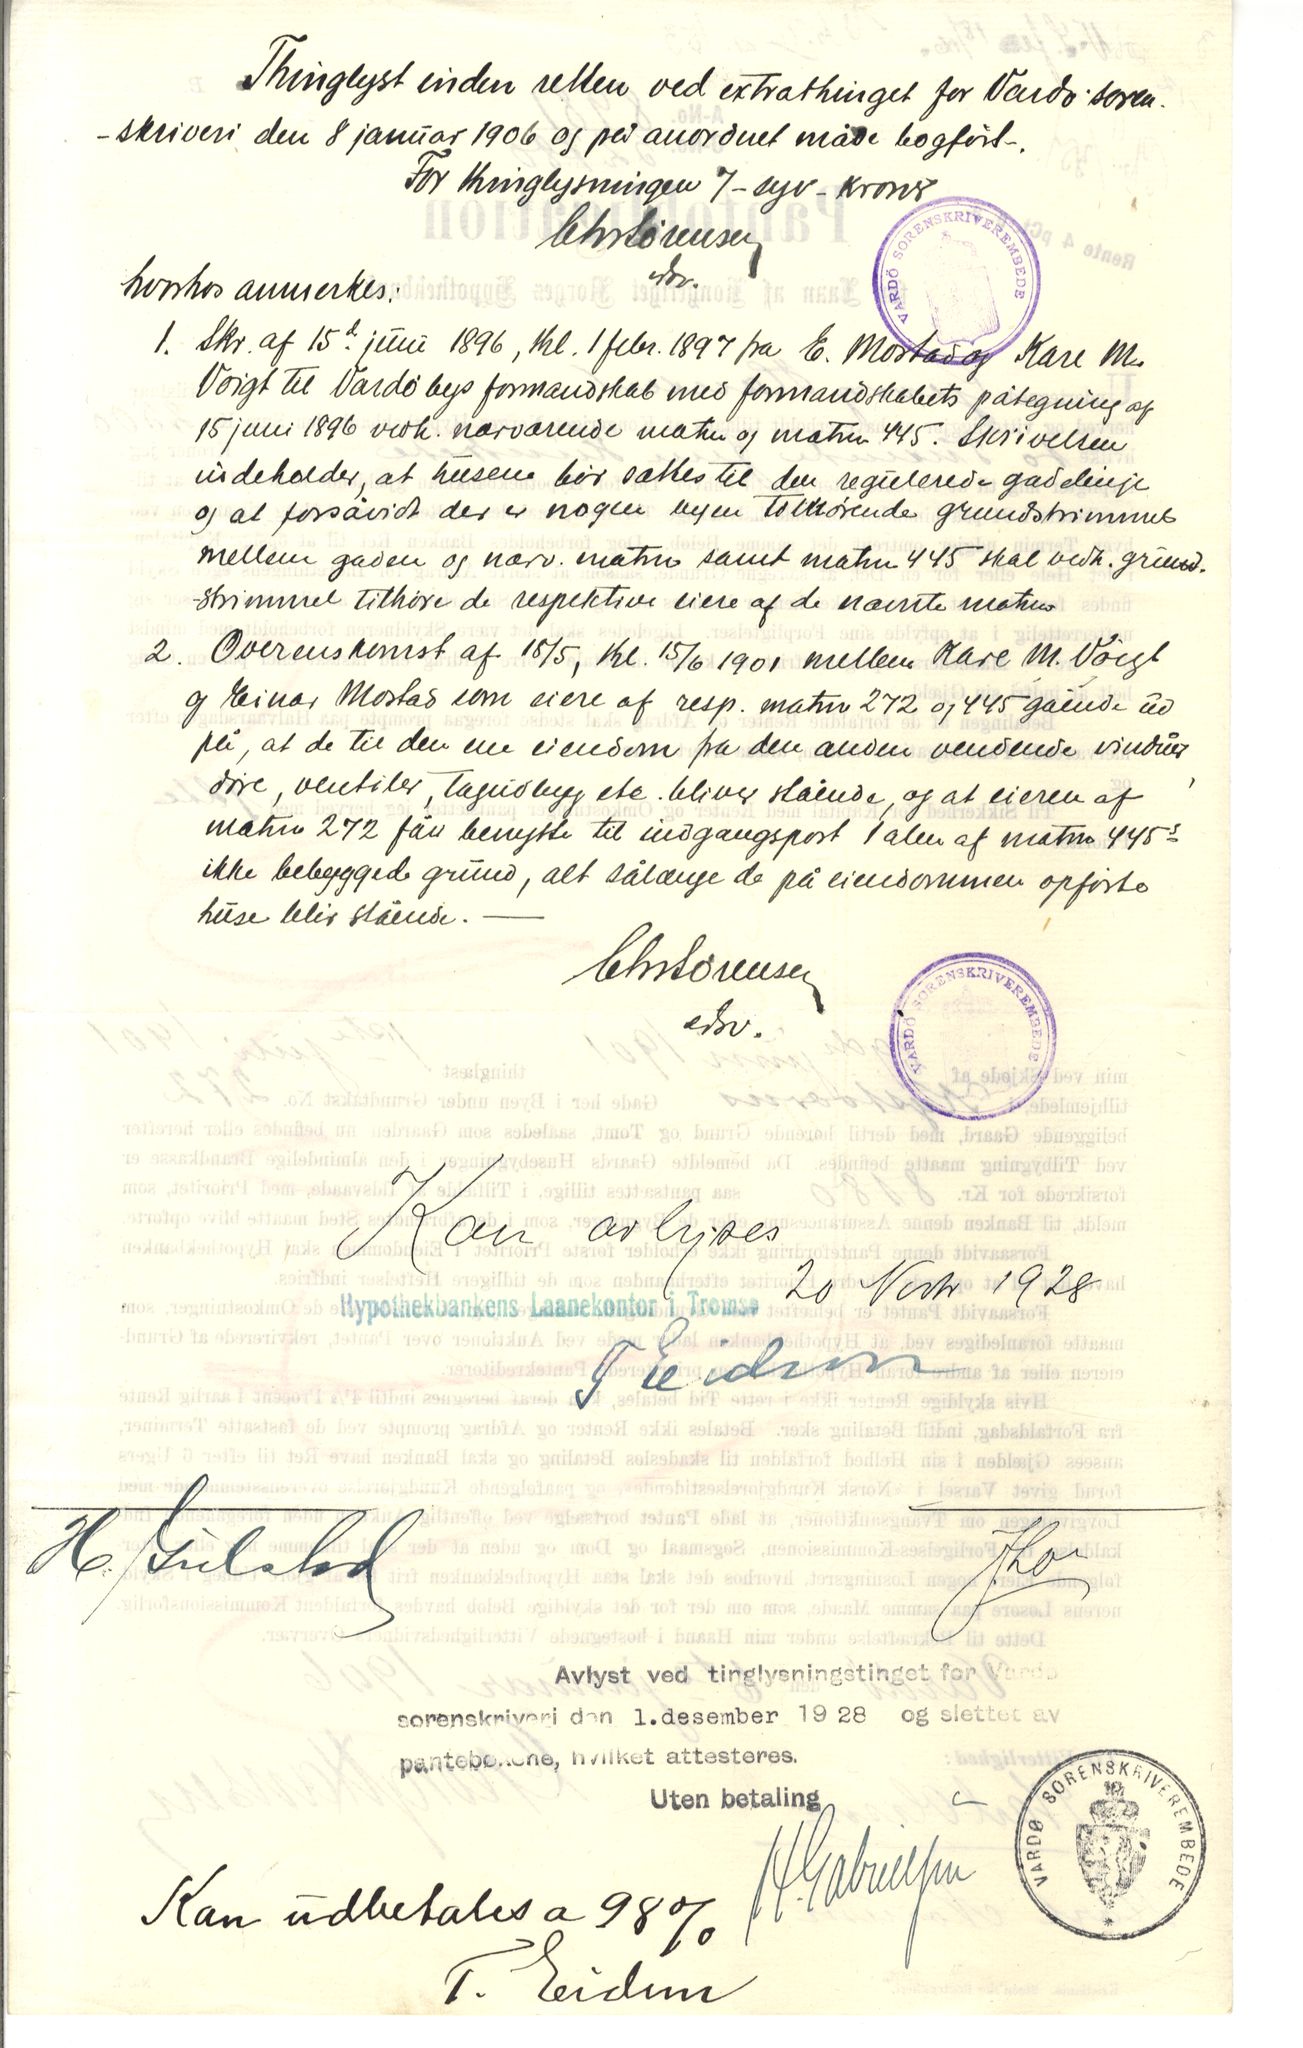 Thinglyst inden retten ved extrathinget for Vardø soren-
-skriveri den 8 januar 1906 og på anordnet måde bogført-.
For thinglysningen 7 - syv - kroner
Chr Sørensen
edsv.
hvorhos anmerkes:
1. Skr. af 15d juni 1896, thl. 1 febr. 1897 fra E. Mostad og Kare M.
Voigt til Vardø bys formandskab med formandskabets påtegning af
15 juni 1896 vedk. nærværende matrn og matrn 445. Skrivelsen
indeholder, at husene bør sættes til den regulerede gadelinje
og at forsåvidt der er nogen byen tilhørende grundstrimmel
mellem gaden og nærv. matrn samt matrn 445 skal vedk. grund-
-strimmel tilhøre de respektive eiere af de nævnte matrn
2. Overenskomst af 15/5, thl. 15/6 1901 mellem Kare M. Voigt
og Einar Mostad som eiere af resp. matrn 272 og 445 gående ud
på, at de til den ene eiendom fra den anden vendende vinduer
døre, ventiler, tagudbyg etc. bliver stående, og at eieren af
matrn 272 får benytte til indgangsport 1 alen af matrn 445s
ikke bebyggede grund, alt sålænge de på eiendommen opførte
huse blir stående. —
Chr Sørensen
edsv.
VARDÖ SORENSKRIVEREMBEDE
VARDÖ SORENSKRIVEREMBEDE
Kan avlyses
20 Novbr 1928
Hypothekbankens Laanekontor i Tromsø
T Eidum
Avlyst ved tinglysningstinget for Vardø
sorenskriveri den 1. desember 1928 og slettet av
pantebøkene, hvilket attesteres.
Uten betaling
H. Gabrielsen
VARDØ SORENSKRIVEREMBEDE
Kan udbetales a 98 %
T. Eidum